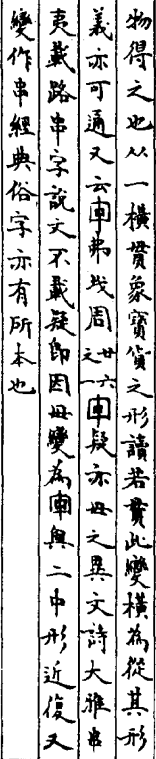 物得之也从一橫貫象寶貨之形讀若貫此變橫為從其形
義亦可通又云弗戈周卄六之一疑亦毌之異文詩大雅串
夷載路串字說文不載疑即因毌變為與二中形近復又
變作串經典俗字亦有所本也